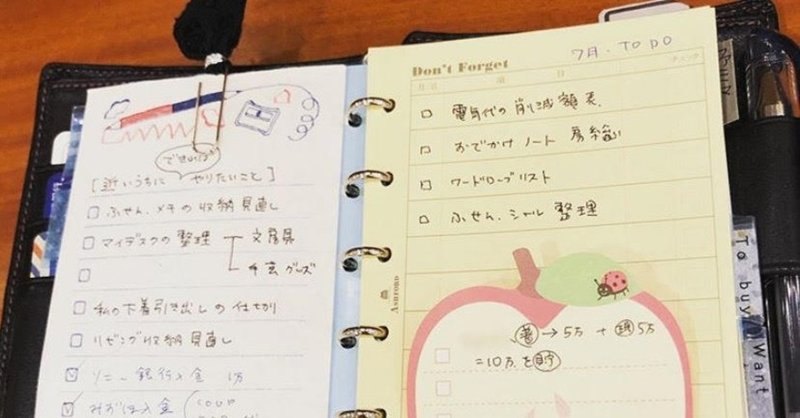 できれば
[近いうちに やりたいこと]
ふせん、メモの収納見直し
マイデスクの整理 文房具
手芸グッズ
私の下着引き出しの仕切り
リビング収納見直し
ソニー銀行入金 1万
みずほ入金
Don't Forget 7月・TO DO
月 日 項 目 チェック
電気代の削減額表
おでかけノート
ワードローブリスト
ふせん、シール 整理
→5万 + 5万
=10万を貯
Ashford
To buy
Want